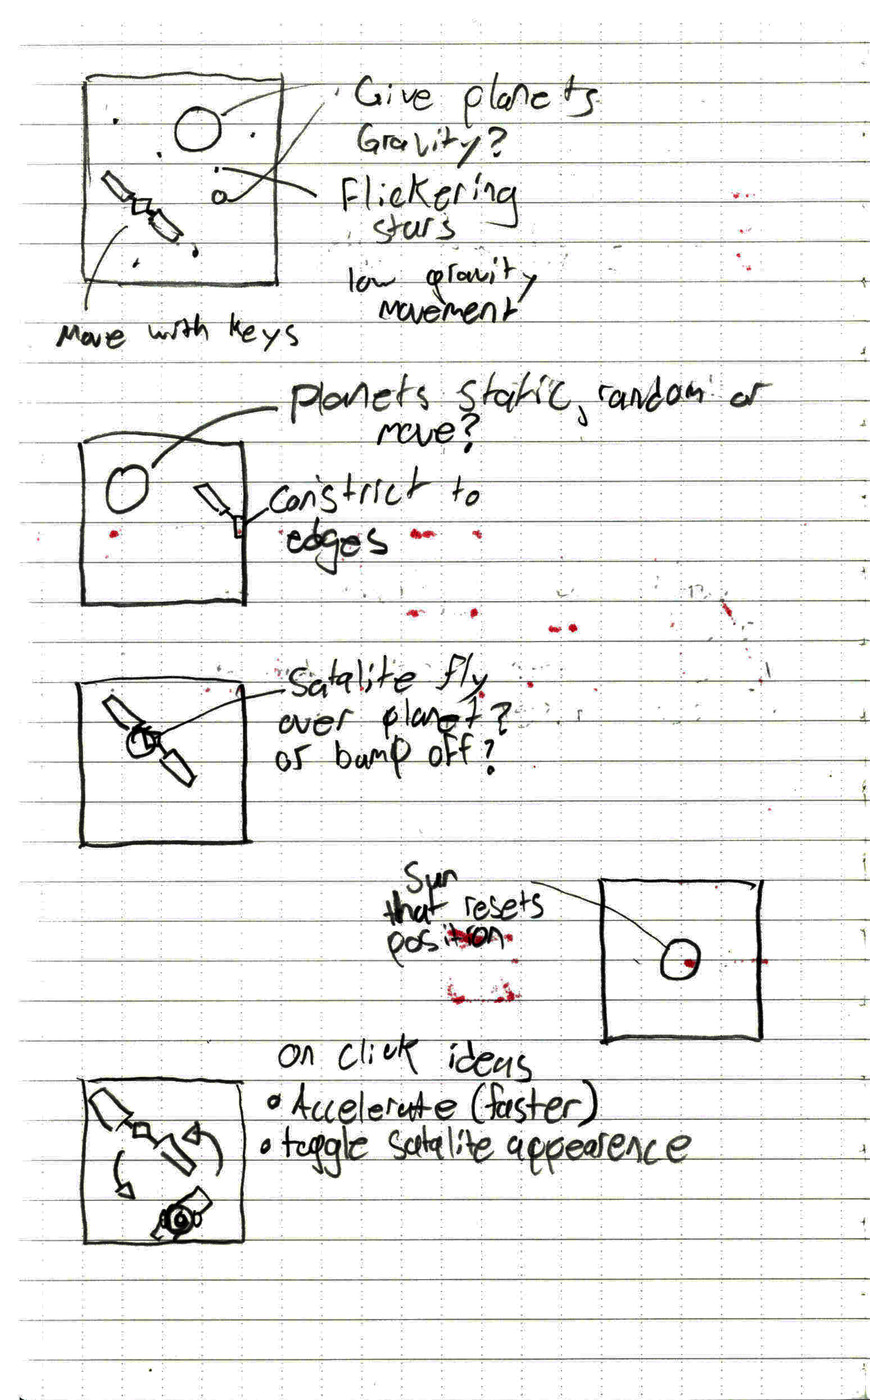 Give planets
Gravity?
Flickering
stars
low gravity
movement
Move with keys
Planets static, random or
move?
Constrict to
edges
Satalite fly
over planet?
or bump off?
Sun
that resets
position
On click ideas
• Accelerate (faster)
• toggle satalite appearence